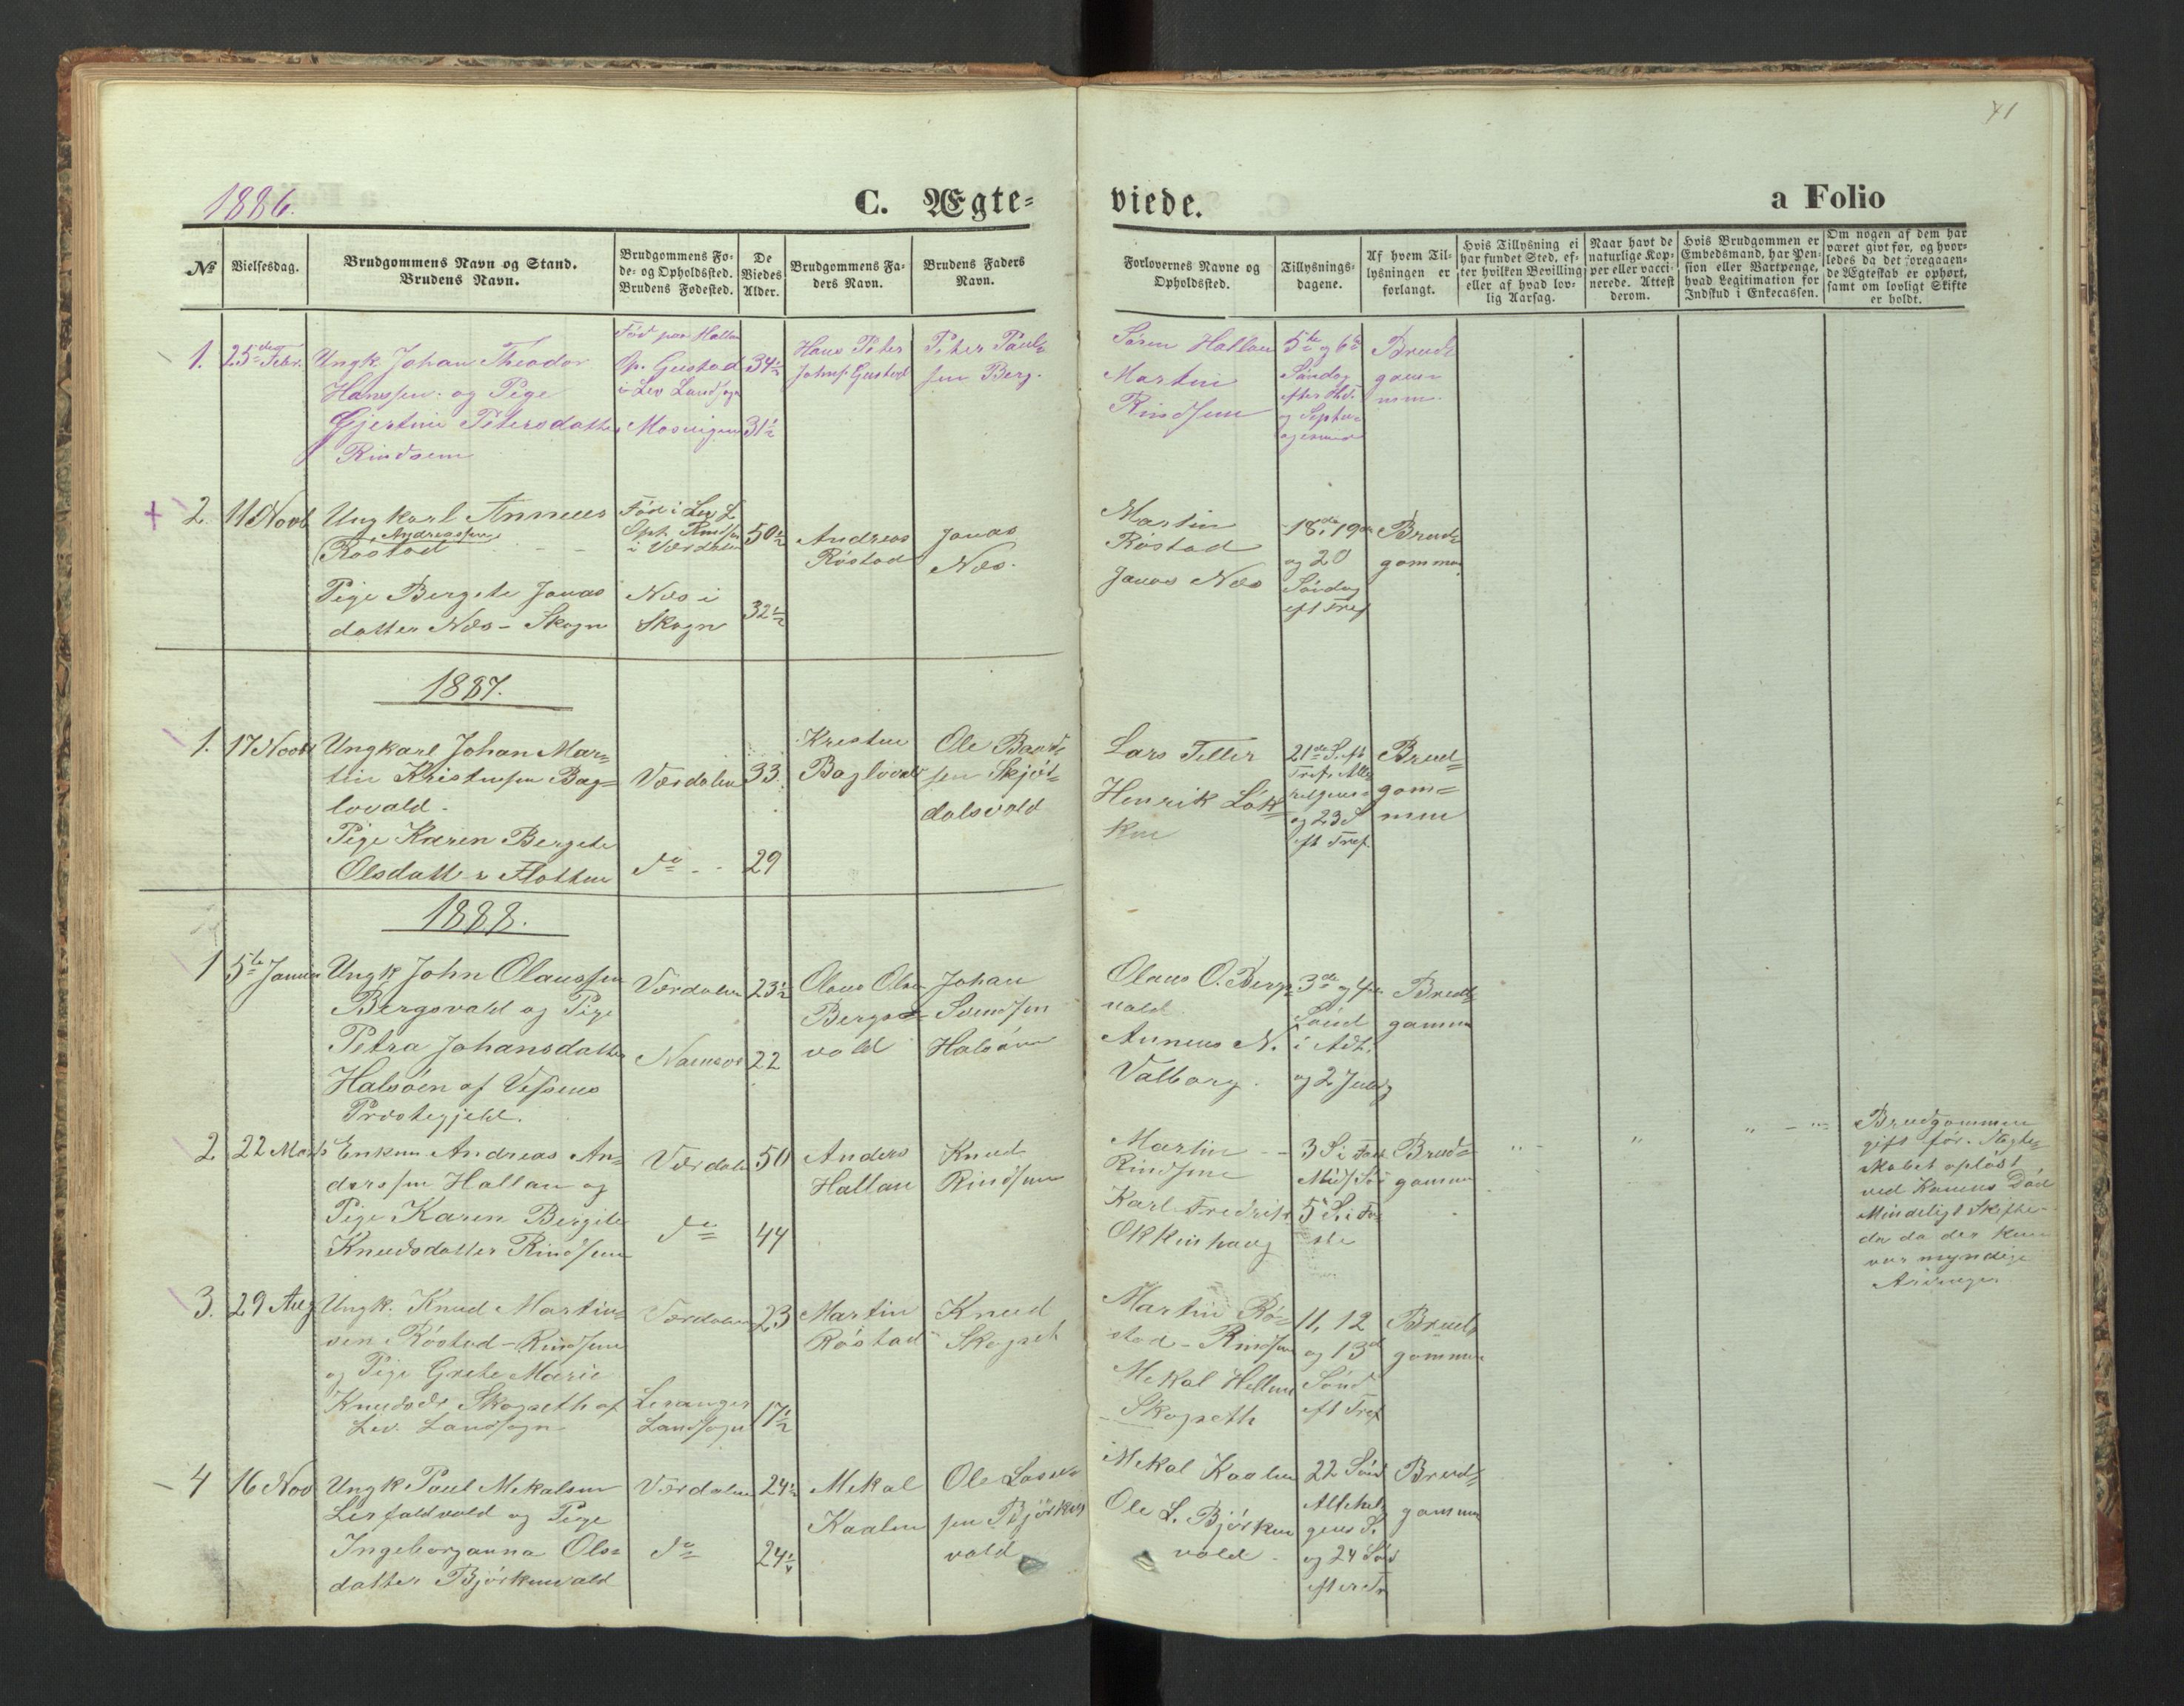 71
1886.
C. Ægte=
viede.
a Folio
No
Vielsesdag.
Brudgommens Navn og Stand.
Brudens Navn.
Brudgommens Fø-
de- og Opholdssted.
Brudens Fødested.
De
Viedes
Alder.
Brudgommens Fa-
ders Navn.
Brudens Faders
Navn.
Forlovernes Navne og
Opholdssted.
Tillysnings-
dagene.
Af hvem Til-
lysningen er
forlangt.
Hvis Tillysning ei
har fundet Sted, ef-
ter hvilken Bevilling
eller af hvad lov-
lig Aarsag.
Naar havt de
naturlige Kop-
per eller vacci-
nerede. Attest
derom.
Hvis Brudgommen er
Embedsmand, har Pen-
sion eller Vartpenge,
hvad Legitimation for
Indskud i Enkecassen.
Om nogen af dem har
været givt før, og hvor-
ledes da det foregaaen-
de Ægteskab er ophørt,
samt om lovligt Skifte
er holdt.
1.
25de Febr.
Ungk. Johan Theodor
Hanssen og Pige
Gjertine Petersdatter
Rindsem
Fød paa Hallan
Op. Gustad
i Lev Landsogn
Mosvigen
34½
31½
Hans Peter
Johns. Gustad
Peter Paul=
sen Berg.
Søren Hallan
Martin
Rindsem
5te og 6te
Søndag
efter Hel.
og Septua-
gesima
Brud=
gom
men.
+ 2.
11 Novb
Ungkarl Anneus
Andreassen
Røstad
Pige Bergete Jonas
datter Næs - Skogn
Fød i Lev L
Oph. Rindsem
i Værdalen
Næs i
Skogn
50½
32½
Andreas
Røstad
Jonas
Næs.
Martin
Røstad
Jonas Næs
18de, 19de
og 20
Søndag
eft Tref
Brud=
gommen
1887.
1.
17 Novb
Ungkarl Johan Mar=
tin Kristensen Bag=
lovald.
Pige Karen Bergete
Olsdatter Flotten
Værdalen
do - -
33.
29
Kristen
Baglovald
Ole Baard
sen Skjør=
dalsvald
Lars Teller
Henrik Løk=
ken
21de S. eft
Tref. Alle
helgens
og 23 S
eft Tref.
Brud=
gom=
men
1888.
1
5te Januar
Ungk John Olaussen
Bergsvald og Pige
Petra Johansdatter
Halsøen af Vefsens
Præstegjeld.
Værdalen
Namsos
23½
22
Olaus Olsen
Bergs=
vald
Johan
Svendsen
Halsøen
Olaus O. Bergs=
vald
Anneus N.
Valborg.
3de og 4de
Sønd
i Adv.
og 2 Juledg
Brud=
gommen
2
22 Marts
Enkem Andreas An=
derssen Hallan og
Pige Karen Bergite
Knudsdatter Rindsem
Værdalen
do
50
44
Anders
Hallan
Knud
Rindsem
Martin - -
Rindsem
Karl Fredrik
Okkenhaug
3 S i Fast
Midf. Sø
5 S. i Fa
ste
Brud=
gommen
" -
"
" - "
Brudgommen
gift før. Ægte=
skabet opløst
ved Konens Død
Mindeligt Skifte
da der kun
var myndige
Arvinger
3.
29 Aug
Ungk. Knud Martin=
sen Røstad - Rindsem
og Pige Grete Marie
Knudsdr Skogseth af
Lev. Landsogn
Værdalen
Levanger
Landsogn
23
17½
Martin
Røstad
Knud
Skogset
Martin Rø=
stad - Rindsem
Mekal Hellem
Skogseth
11, 12
og 13d
Sønd
eft Tref
Brud=
gommen
4
16 Nov
Ungk Paul Mekalsen
Leufaldvald og Pige
Ingeborganna Ols=
datter Bjørkenvald
Værdalen
do
24½
24¼
Mekal
Kaalen
Ole Lars
sen Bjørken
vald
Mekal Kaalen
Ole L. Bjørken
vald.
22 Sønd
Allehel
gens S.
og 24 Sød
efter Tr
Brud=
gommen